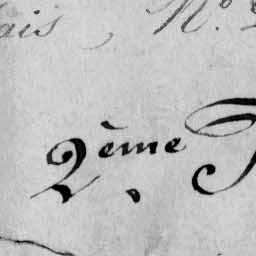 ais, N.º
2ème